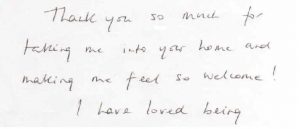 Thank you so much for
taking me into your home and
making me feel so welcome!
I have loved being